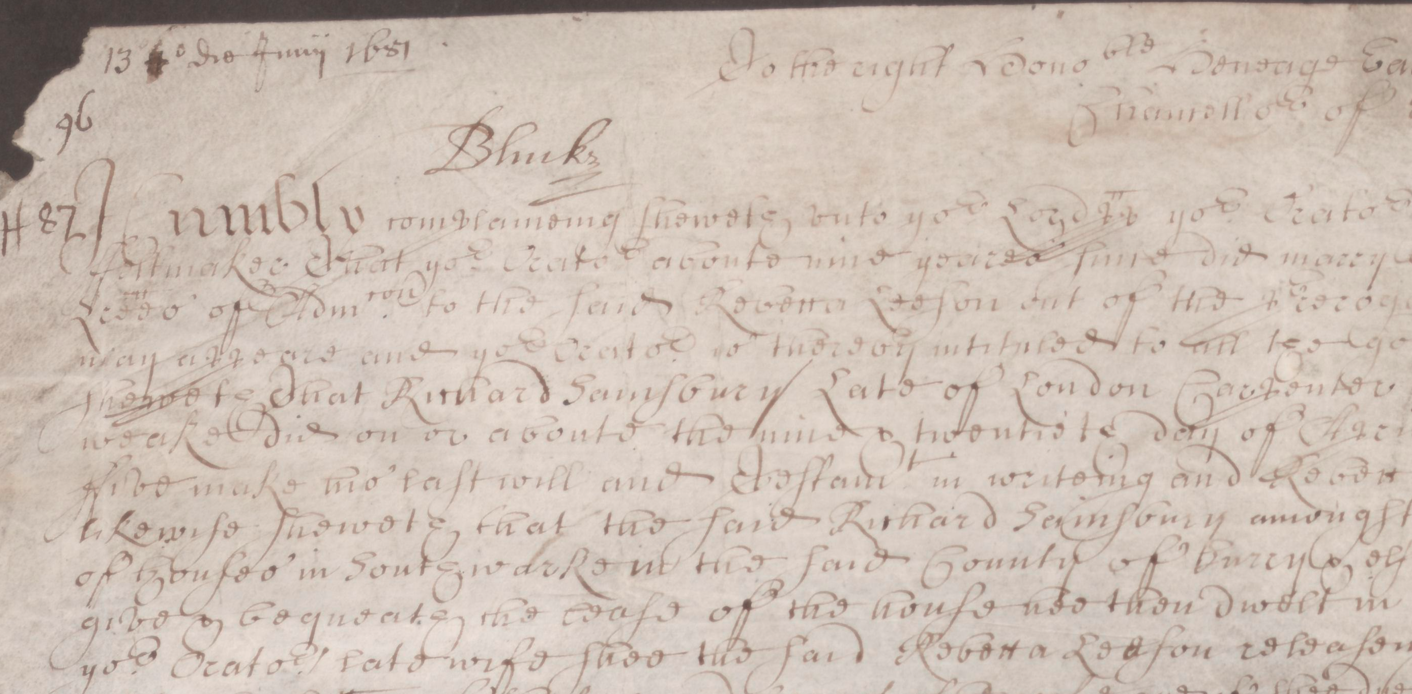 13º die Junij 1681
To the right Honoble Heneage Ea
96
Chancellor of
Bluck
H 87 Humbly complaineing sheweth unto yor Lordpp yor Orator
ffeltmaker That yor Orator aboute nine yeares since did marry
Lrees of Admcon to the said Rebecca Leeson out of the Prerog
may appeare and yor Orator is thereby intituled to all the go
sheweth That Richard Sainsbury Late of London Carpenter
weake did on or aboute the nine & twentieth day of Apri
ffive make his last will and Testamt in writeing and Rebecc
likewise sheweth that the said Richard Sainsbury amongst
of houses in Southwarke in the said County of Surry & els
give & bequeath the lease of the house hee then dwelt in
yor Orators late wife shee the said Rebecca Leeson releasein